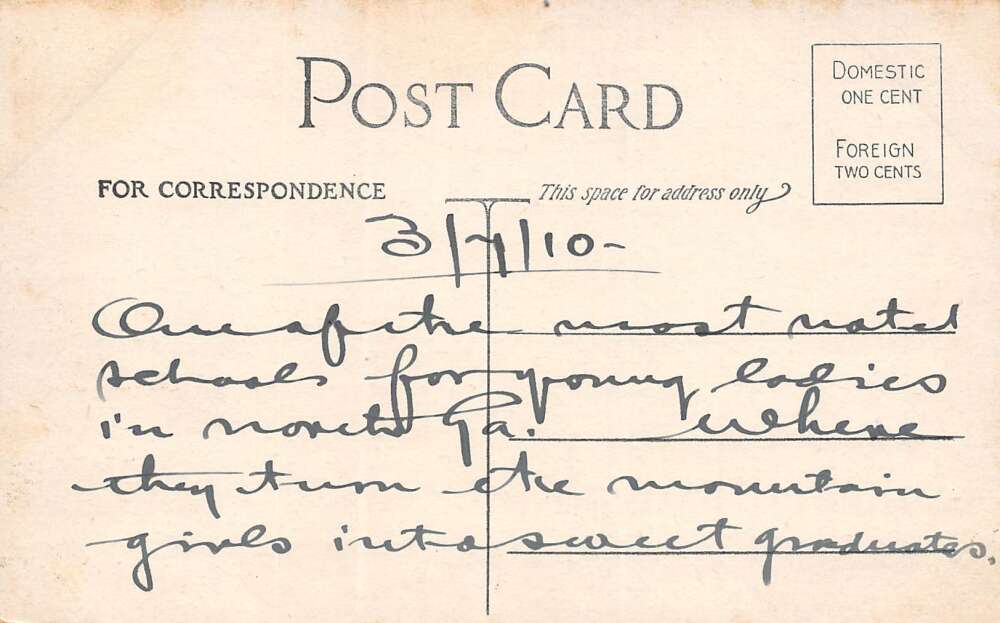 POST CARD
DOMESTIC
ONE CENT
FOREIGN
TWO CENTS
FOR CORRESPONDENCE
This space for address only
3/7/10-
One of the most noted
schools for young ladies
in north Ga. Where
they turn the mountain
girls into sweet graduates.